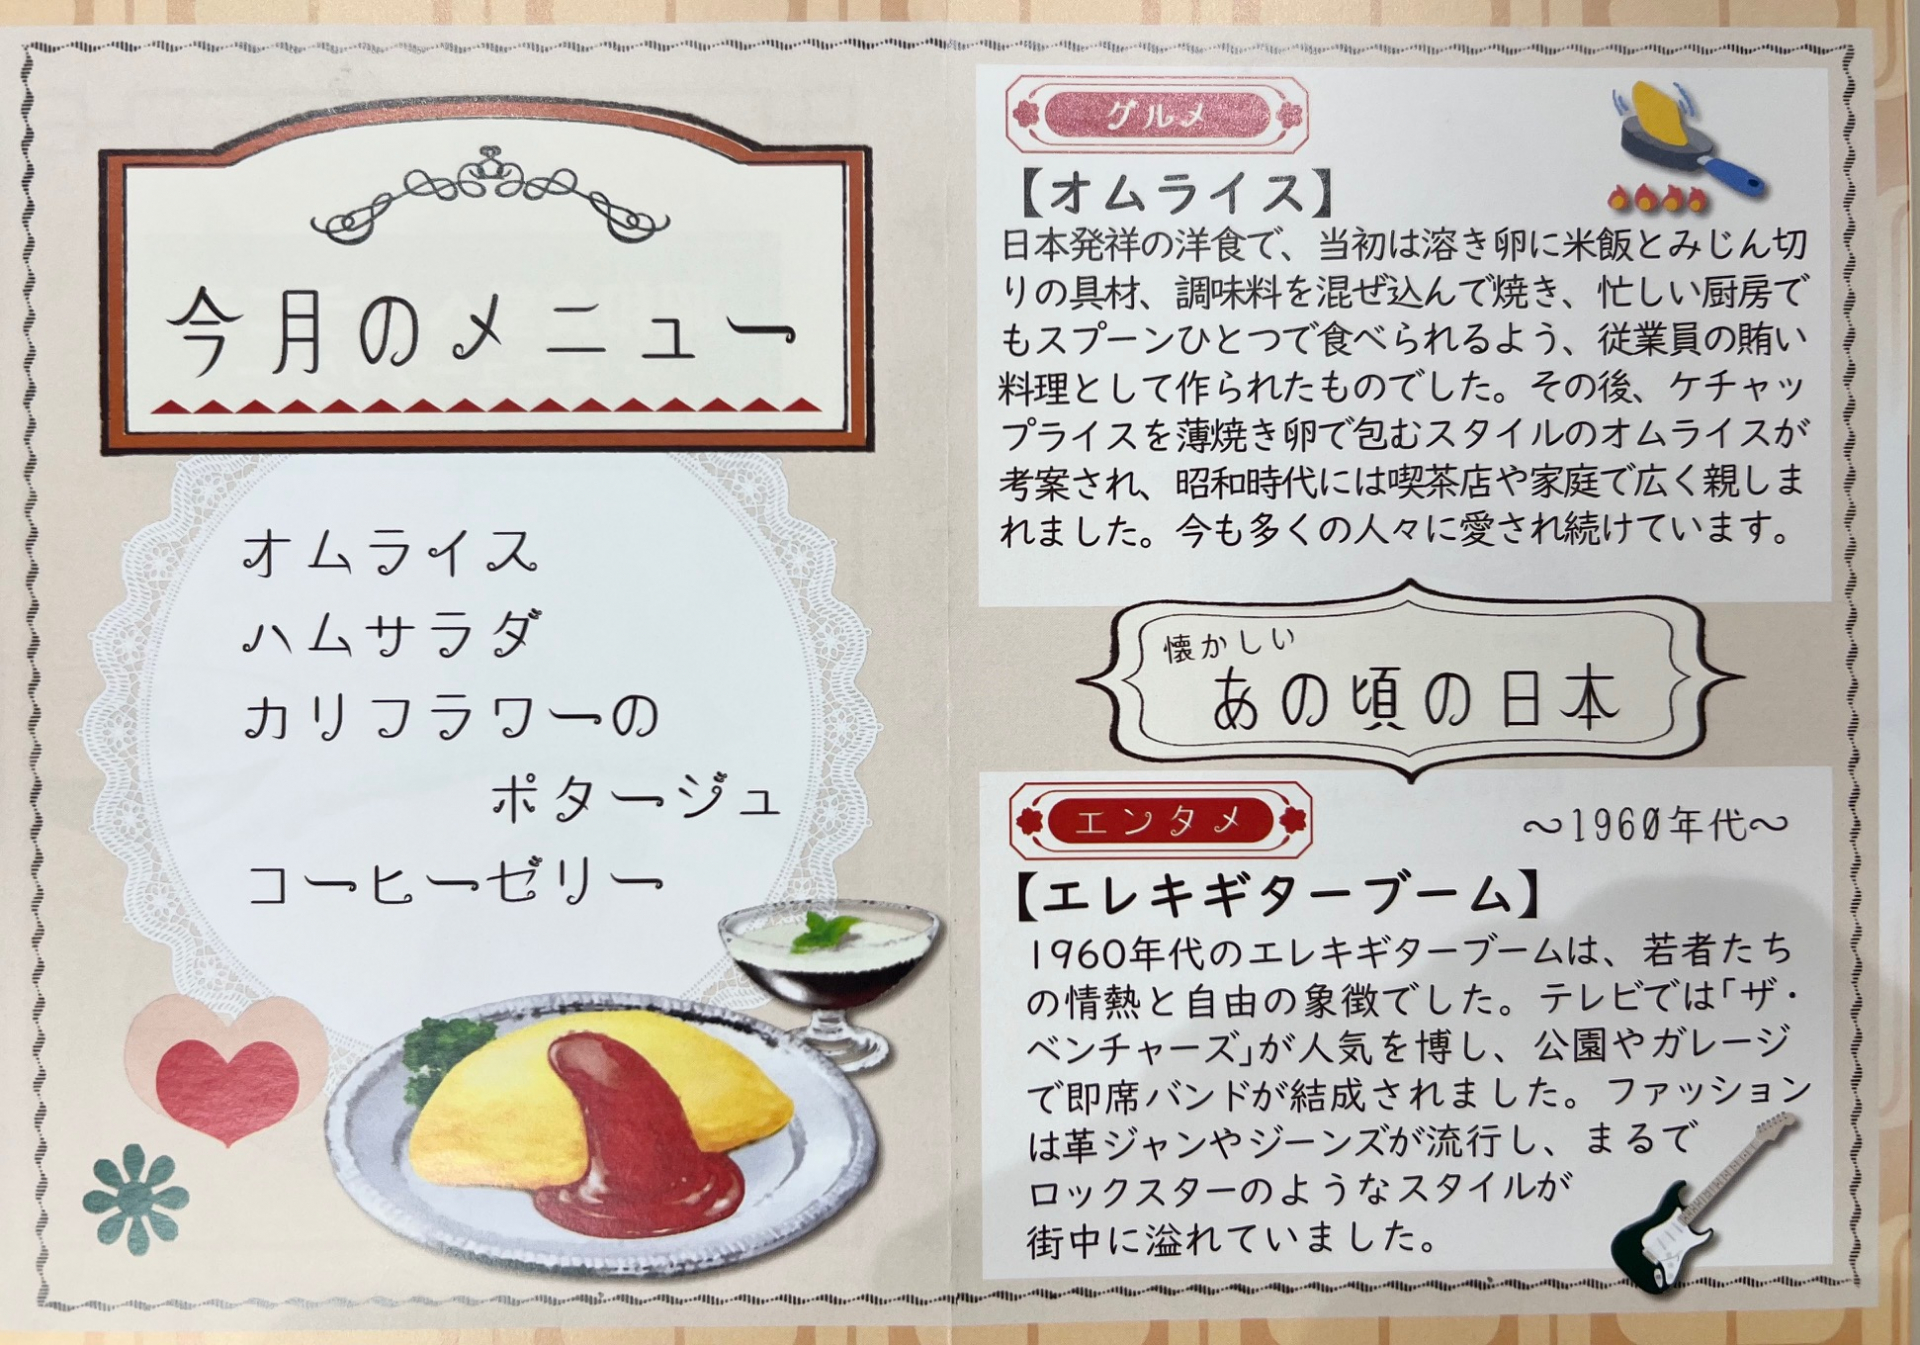 今月のメニュー
オムライス
ハムサラダ
カリフラワーの
ポタージュ
コーヒーゼリー
グルメ
【オムライス】
日本発祥の洋食で、当初は溶き卵に米飯とみじん切
りの具材、調味料を混ぜ込んで焼き、忙しい厨房で
もスプーンひとつで食べられるよう、従業員の賄い
料理として作られたものでした。その後、ケチャッ
プライスを薄焼き卵で包むスタイルのオムライスが
考案され、昭和時代には喫茶店や家庭で広く親しま
れました。今も多くの人々に愛され続けています。
懐かしい
あの頃の日本
エンタメ
～1960年代～
【エレキギターブーム】
1960年代のエレキギターブームは、若者たち
の情熱と自由の象徴でした。テレビでは「ザ・
ベンチャーズ」が人気を博し、公園やガレージ
で即席バンドが結成されました。ファッション
は革ジャンやジーンズが流行し、まるで
ロックスターのようなスタイルが
街中に溢れていました。